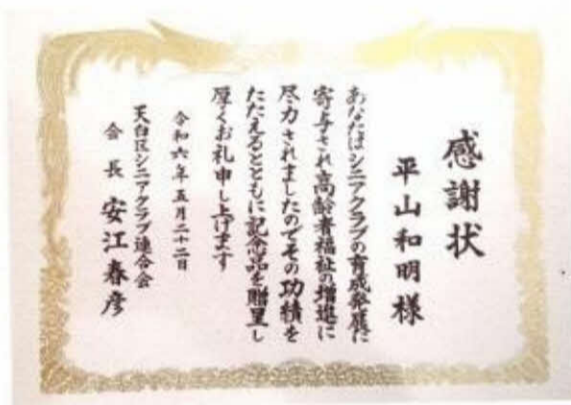 感謝状
平山和明様
あなたはシニアクラブの育成発展に
寄与され高齢者福祉の増進に
尽力されましたのでその功績を
たたえるとともに記念品を贈呈し
厚くお礼申し上げます
令和六年五月二十二日
天白区シニアクラブ連合会
会長 安江春彦